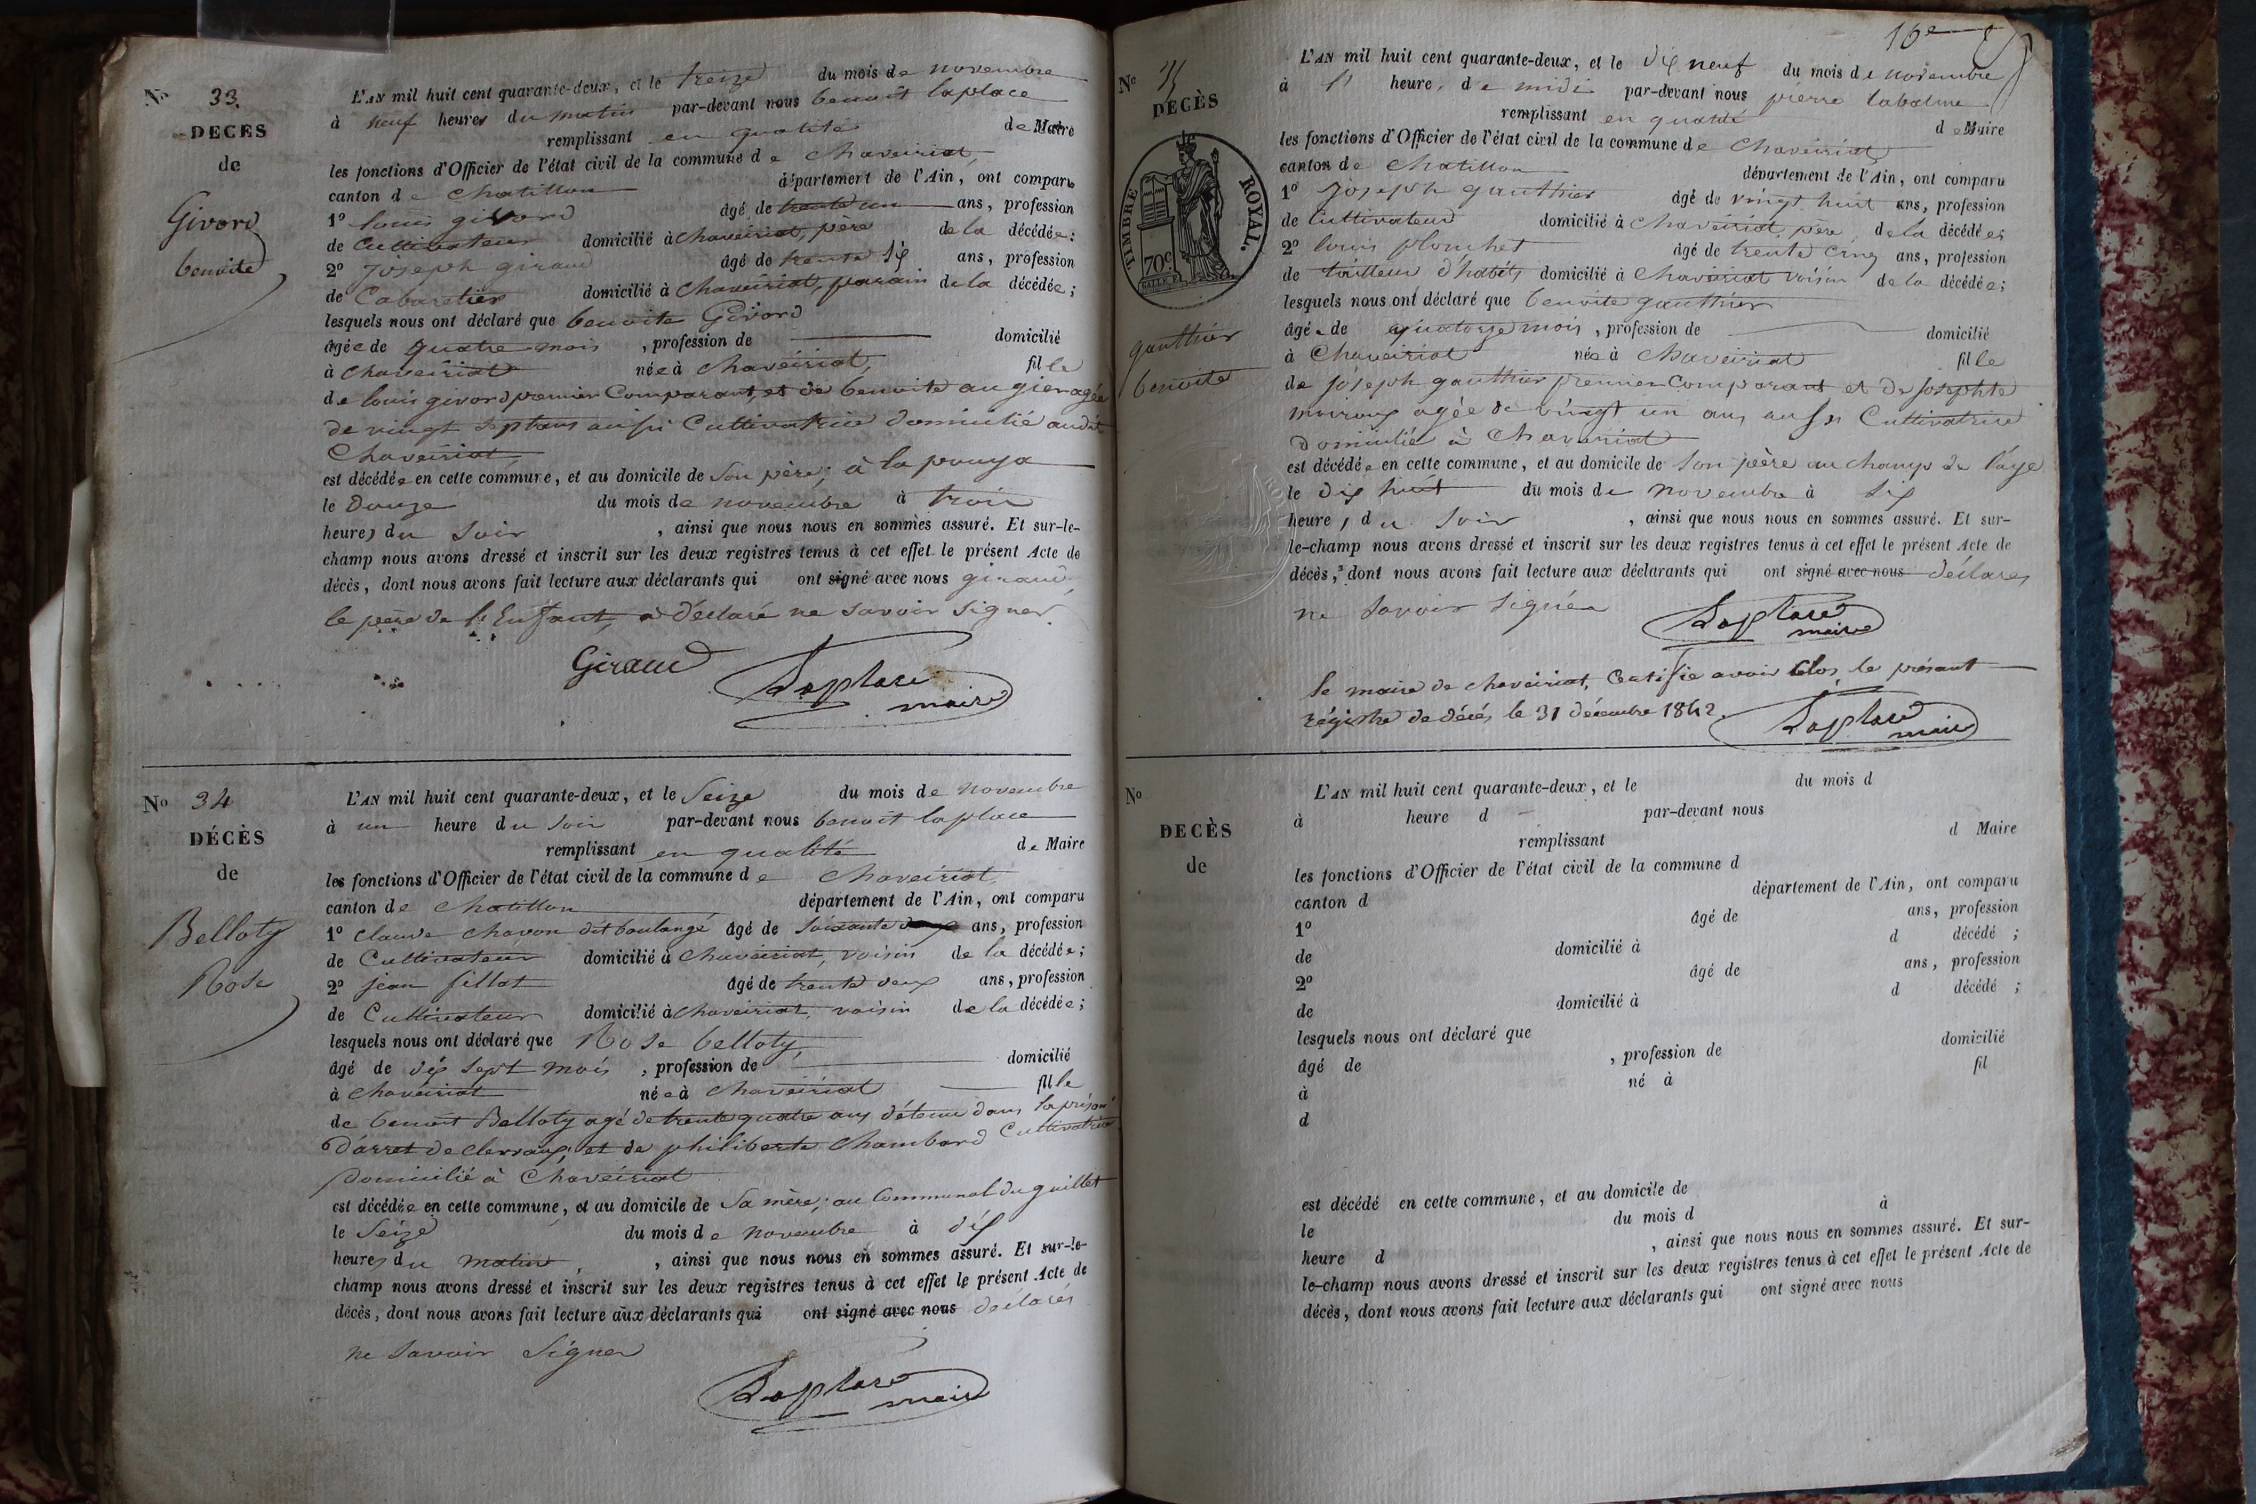 No 33
DECES
de
Givord
benoite
L'AN mil huit cent quarante-deux, et le treize du mois de novembre
à neuf heures du matin par-devant nous benoit laplace
remplissant en qualité de Maire
les fonctions d'Officier de l'état civil de la commune de chaveiriat,
canton de chatillon département de l'Ain, ont comparu
1o louis givord âgé de trente un ans, profession
de Cultivateur domicilié à chaveiriat, père de la décédée:
2o joseph giraud âgé de trente six ans, profession
de Cabaretier domicilié à chaveiriat, parain de la décédée;
lesquels nous ont déclaré que benoite Givord
âgée de quatre mois , profession de domicilié
à chaveiriat née à chaveiriat, fille
de louis givord premier Comparant, et de benoite augier agée
de vingt sept ans aussi Cultivatrice domicilié audit
Chaveiriat,
est décédée en cette commune, et au domicile de son père, à la pouya
le douze du mois de novembre à trois
heures du soir , ainsi que nous nous en sommes assuré. Et sur-le-
champ nous avons dressé et inscrit sur les deux registres tenus à cet effet le présent Acte de
décès, dont nous avons fait lecture aux déclarants qui ont signé avec nous giraud,
le père de l'Enfant, a déclaré ne savoir signer.
Giraud Laplace
maire
No 34
DÉCÈS
de
Belloty
Rose
L'AN mil huit cent quarante-deux, et le Seize du mois de novembre
à un heure du soir par-devant nous benoit laplace
remplissant en qualité de Maire
les fonctions d'Officier de l'état civil de la commune de chaveiriat,
canton de chatillon département de l'Ain, ont comparu
1o claude chavon dit boulangé âgé de soixante ans, profession
de Cultivateur domicilié à chaveiriat, voisin de la décédée;
2o jean fillot âgé de trente deux ans, profession
de Cultivateur domicilié à chaveiriat, voisin de la décédée;
lesquels nous ont déclaré que Rose belloty,
âgé de dix sept mois , profession de domicilié
à chaveiriat née à chaveiriat fille
de benoit Belloty agé de trente quatre ans détenu dans la prison
d'arret de clervaux, et de philiberte Chambard Cultivatrice
domicilié à Chaveiriat
est décédée en cette commune, et au domicile de sa mère, au Communal du guillet
le Seize du mois de novembre à dix
heures du matin , ainsi que nous nous en sommes assuré. Et sur-le-
champ nous avons dressé et inscrit sur les deux registres tenus à cet effet le présent Acte de
décès, dont nous avons fait lecture aux déclarants qui ont signé avec nous déclarés
ne savoir signer
Laplace
maire
16e
No 35
DÉCÈS
TIMBRE ROYAL.
70c
gauthier
benoite
L'AN mil huit cent quarante-deux, et le dix neuf du mois de novembre
à heure, de midi par-devant nous pierre labalme
remplissant en qualité de Maire
les fonctions d'Officier de l'état civil de la commune de chaveiriat
canton de chatillon département de l'Ain, ont comparu
1o joseph gauthier âgé de vingt huit ans, profession
de cultivateur domicilié à chaveiriat, père de la décédée;
2o louis plonchet âgé de trente cinq ans, profession
de tailleur d'habits domicilié à chaveiriat voisin de la décédée;
lesquels nous ont déclaré que benoite gauthier
âgée de quatorze mois, profession de domicilié
à Chaveiriat née à chaveiriat fille
de joseph gauthier premier Comparant et de josephte
agée de vingt un ans aussi Cultivatrice
domicilié à Chaveiriat
est décédée en cette commune, et au domicile de son père au champ de l'aye
le dix huit du mois de novembre à six
heures du soir , ainsi que nous nous en sommes assuré. Et sur-
le-champ nous avons dressé et inscrit sur les deux registres tenus à cet effet le présent Acte de
décès, dont nous avons fait lecture aux déclarants qui ont signé avec nous déclarés
ne savoir signer
Laplace
maire
le maire de chaveiriat, Certifie avoir Clos, le présant
régistre de décés le 31 décembre 1842.
Laplace
maire
No
DECÈS
de
L'AN mil huit cent quarante-deux, et le du mois d
à heure d par-devant nous
remplissant d Maire
les fonctions d'Officier de l'état civil de la commune d
canton d département de l'Ain, ont comparu
1o âgé de ans, profession
de domicilié à d décédé ;
2o âgé de ans, profession
de domicilié à d décédé ;
lesquels nous ont déclaré que
âgé de , profession de domicilié
à né à fil
d
est décédé en cette commune, et au domicile de
le du mois d à
heure d , ainsi que nous nous en sommes assuré. Et sur-
le-champ nous avons dressé et inscrit sur les deux registres tenus à cet effet le présent Acte de
décès, dont nous avons fait lecture aux déclarants qui ont signé avec nous